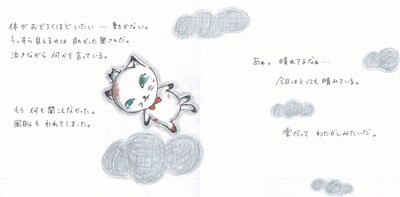 体がおどろくほどいたい … 動かない。
うっすら見えるのは 助かった 弟さんだ。
泣きながら 何かを言っている。
もう 何も 聞こえなかった。
風船も われてしまった。
あぁ。 晴れてるなぁ…
今日は とっても 晴れている。
雲だって わたがしみたいだ。